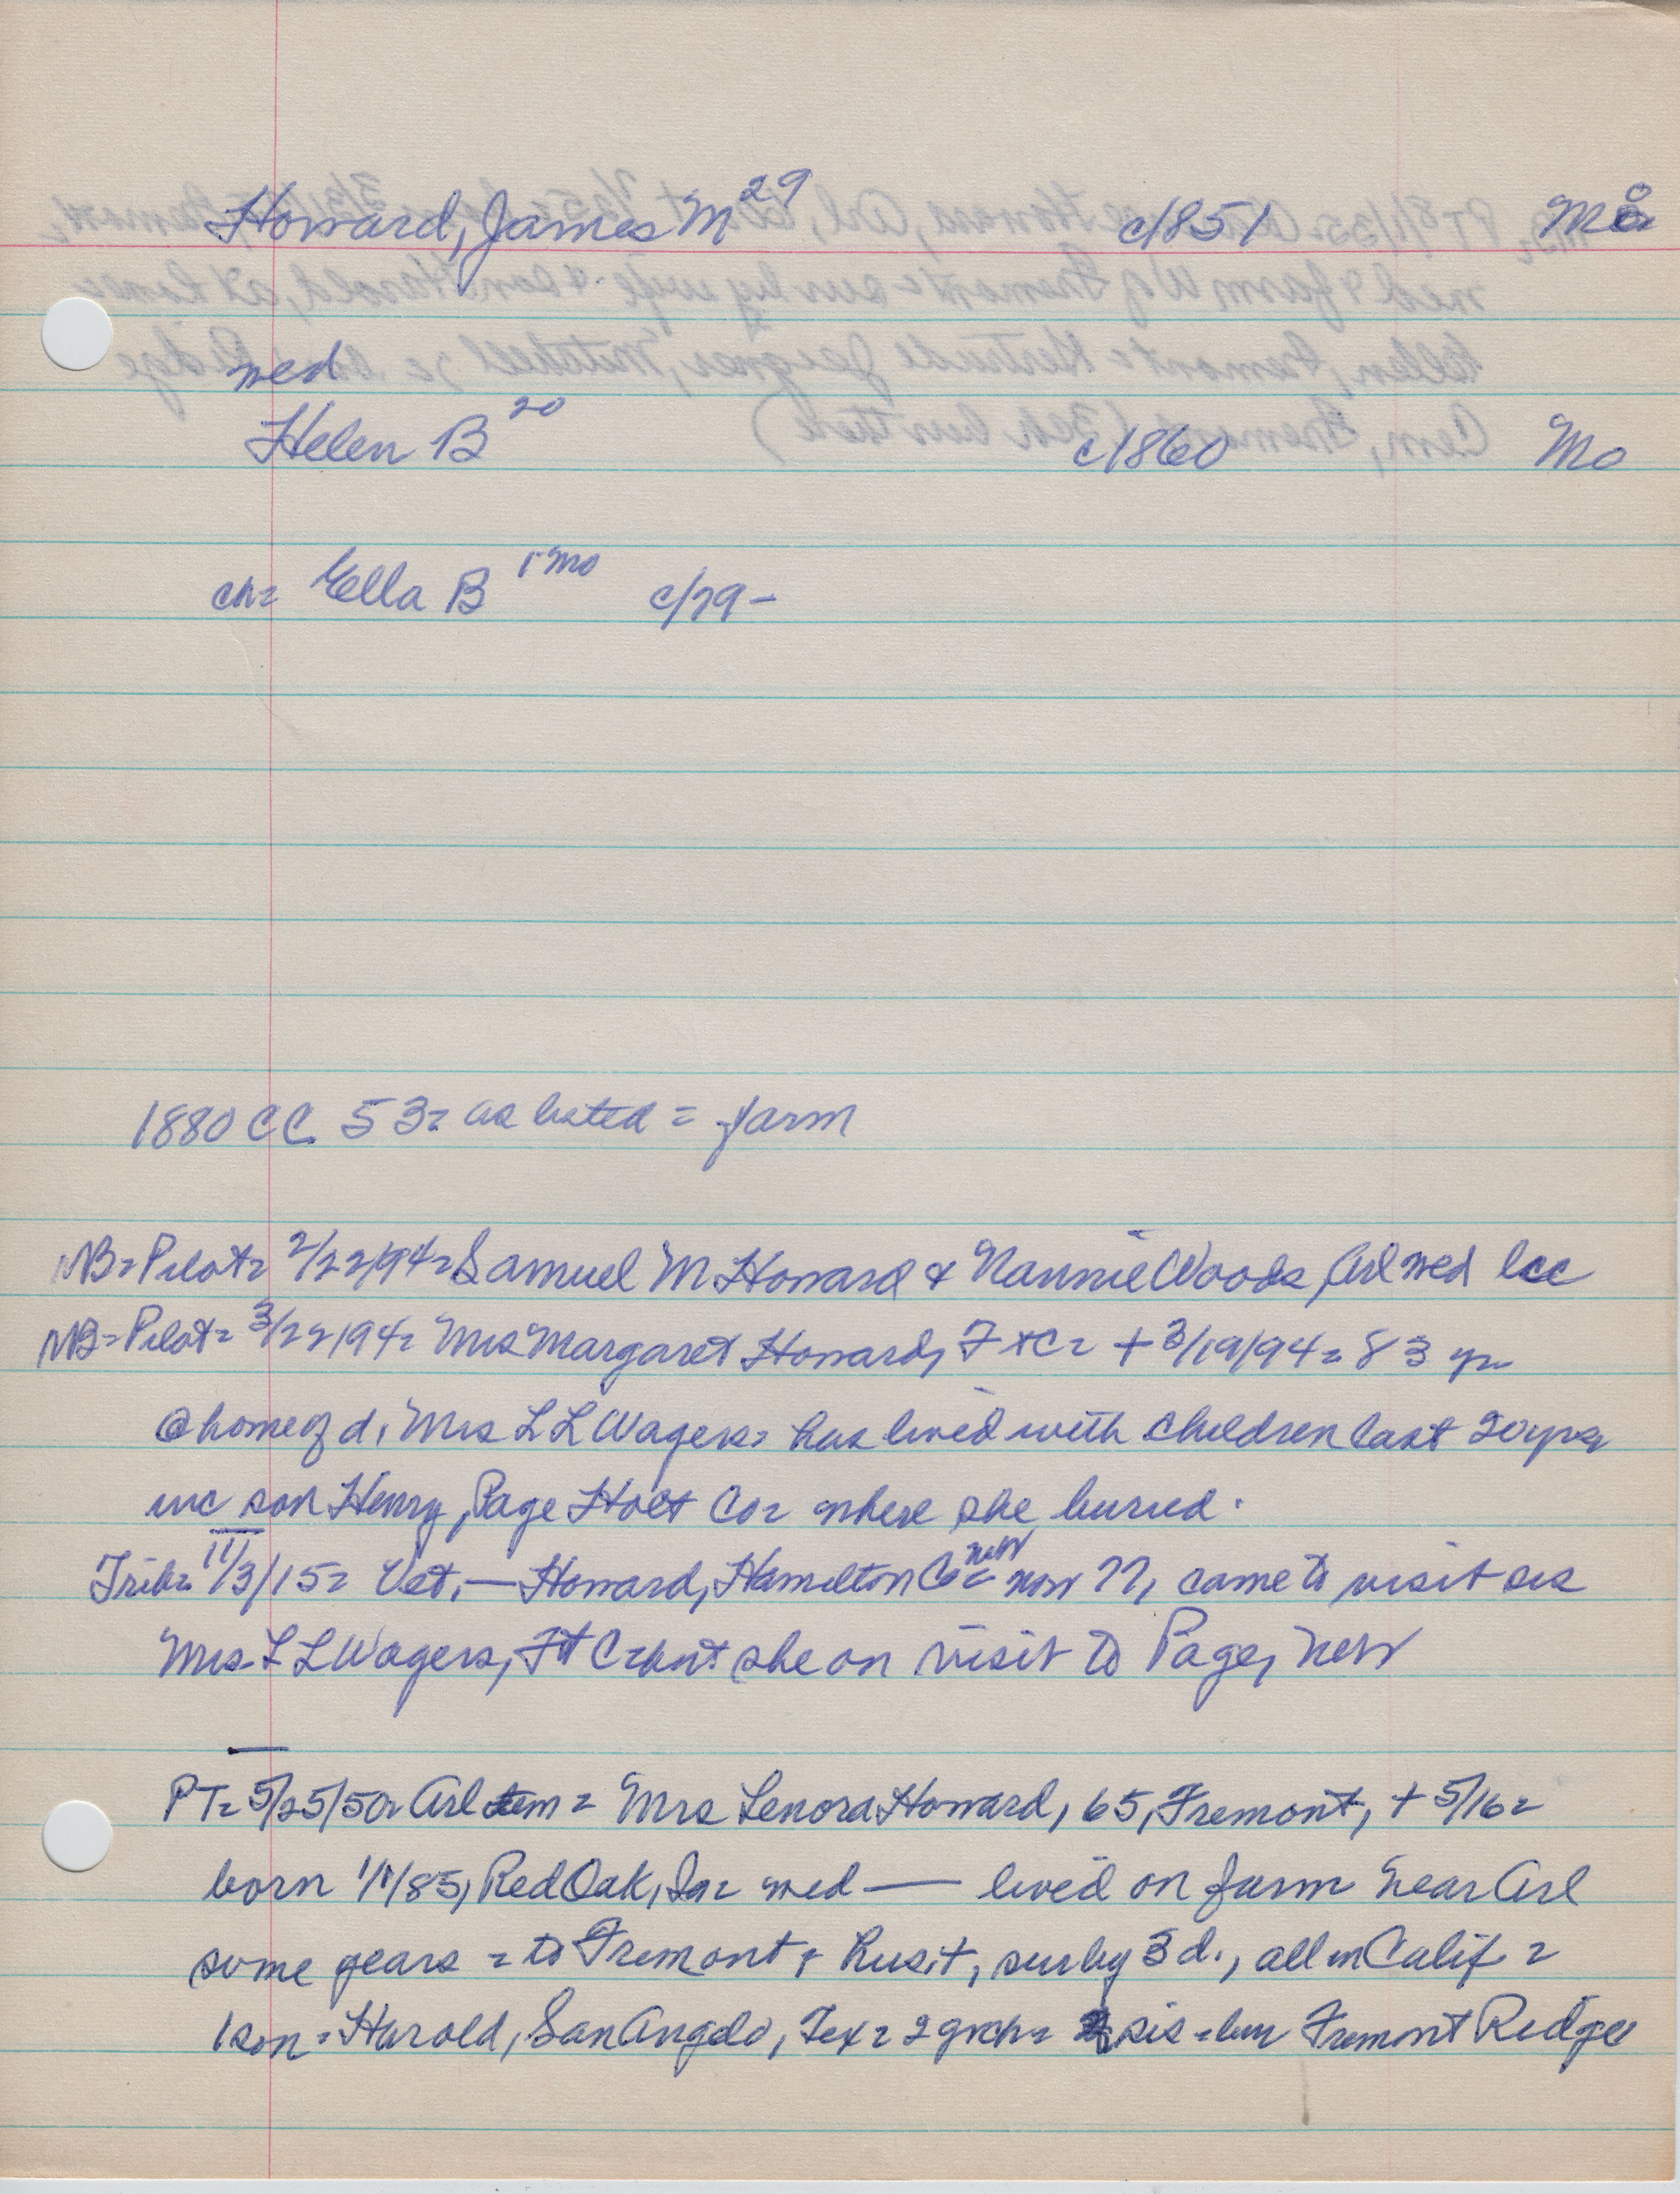 Howard, James M 29 c/1851 Mo
med
Helen B 20 c/1860 Mo
ch= Ella B 1 mo c/79-
1880 CC 53= as listed = farm
NB=Pilot= 2/22/94= Samuel M Howard & Nannie Woods, Arl med lcc
NB=Pilot= 3/22/94= Mrs Margaret Howard, Ft C= + 3/19/94= 83 yr
@ home of d, Mrs L L Wagers= has lived with children last 20 yrs,
inc son Henry, Page Holt Co= where she buried.
Trib= 11/3/15= Vet, — Howard, Hamilton Co= Neb now 77, came to visit sis
Mrs. L L Wagers, Ft C= but she on visit to Page, Neb
PT= 5/25/50= Arl item = Mrs Lenora Howard, 65, Fremont, + 5/16=
born 1/1/85, Red Oak, Ia= med — lived on farm near Arl
some years = to Fremont; surby 3 d., all in Calif =
1 son= Harold, San Angelo, Tex= 2 grch= sis = bur Fremont Ridge